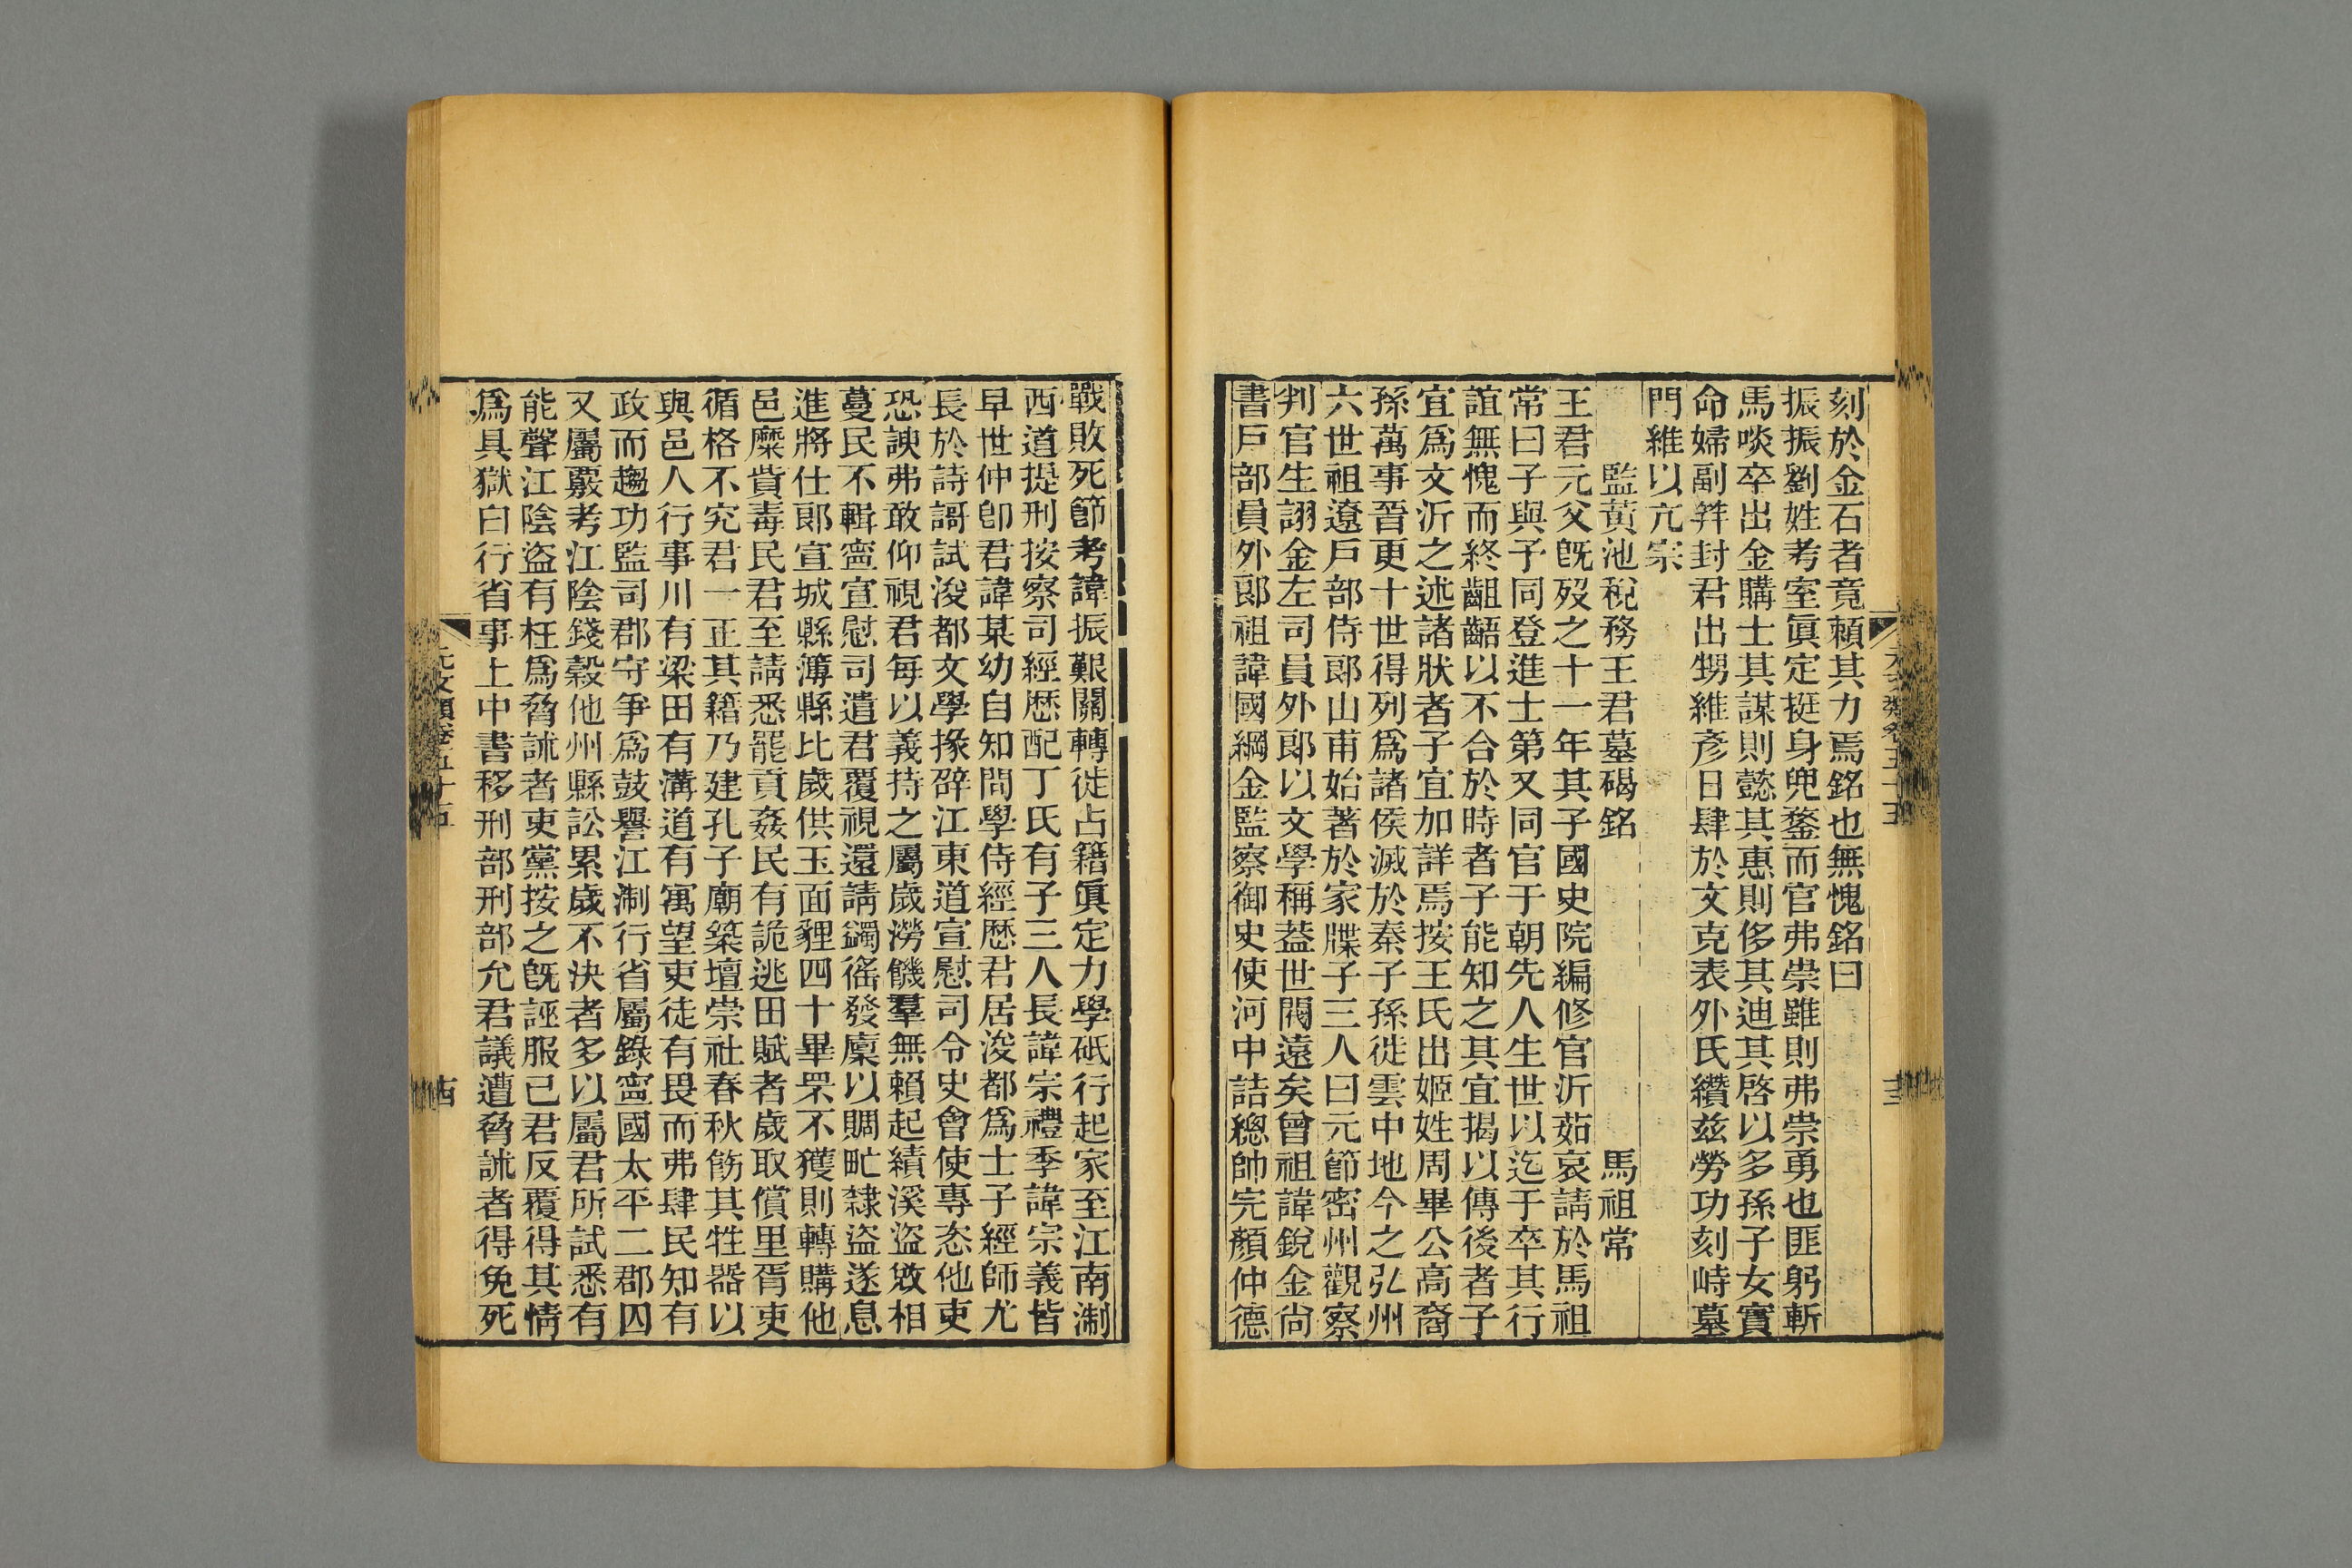 刻於金石者竟賴其力焉銘也無愧銘曰
振振劉姓考室眞定挺身兜鍪而官弗崇雖則弗崇勇也匪躬斬
馬啖卒出金購士其謀則懿其惠則侈其迪其啓以多孫子女實
命婦副笄封君出甥維彥日肆於文克表外氏纘兹勞功刻峙墓
門維以亢宗
監黃池稅務王君墓碣銘 馬祖常
王君元父旣歿之十一年其子國史院編修官沂茹哀請於馬祖
常曰子與予同登進士第又同官于朝先人生世以迄于卒其行
誼無愧而終齟齬以不合於時者子能知之其宜揭以傳後者子
宜爲文沂之述諸狀者子宜加詳焉按王氏出姬姓周畢公高裔
孫萬事晉更十世得列爲諸侯滅於秦子孫徙雲中地今之弘州
六世祖遼戶部侍郎山甫始著於家牒子三人曰元節密州觀察
判官生詡金左司員外郎以文學稱葢世閥遠矣曾祖諱銳金尙
書戶部員外郎祖諱國綱金監察御史使河中詰總帥完顏仲德
元文類卷五十五 十三
戰敗死節考諱振艱關轉徙占籍眞定力學砥行起家至江南浙
西道提刑按察司經歷配丁氏有子三人長諱宗禮季諱宗義皆
早世仲卽君諱某幼自知問學侍經歷君居浚都爲士子經師尤
長於詩謌試浚都文學掾辟江東道宣慰司令史曾使專恣他吏
恐諛弗敢仰視君每以義持之屬歲澇饑羣無賴起績溪盜敓相
蔓民不輯寧宣慰司遣君覆視還請蠲徭發廩以賙甿隸盜遂息
進將仕郎宣城縣簿縣比歲供玉面貍四十畢罘不獲則轉購他
邑糜貲毒民君至請悉罷貢姦民有詭逃田賦者歲取償里胥吏
循格不究君一正其籍乃建孔子廟築壇崇社春秋飭其牲器以
與邑人行事川有梁田有溝道有寓望吏徒有畏而弗肆民知有
政而趨功監司郡守爭爲鼓譽江浙行省屬錄寧國太平二郡囚
又屬覈考江陰錢穀他州縣訟累歲不決者多以屬君所試悉有
能聲江陰盜有枉爲脅訹者吏黨按之旣誣服已君反覆得其情
爲具獄白行省事上中書移刑部刑部允君議遭脅訹者得免死
元文類卷五十五 古